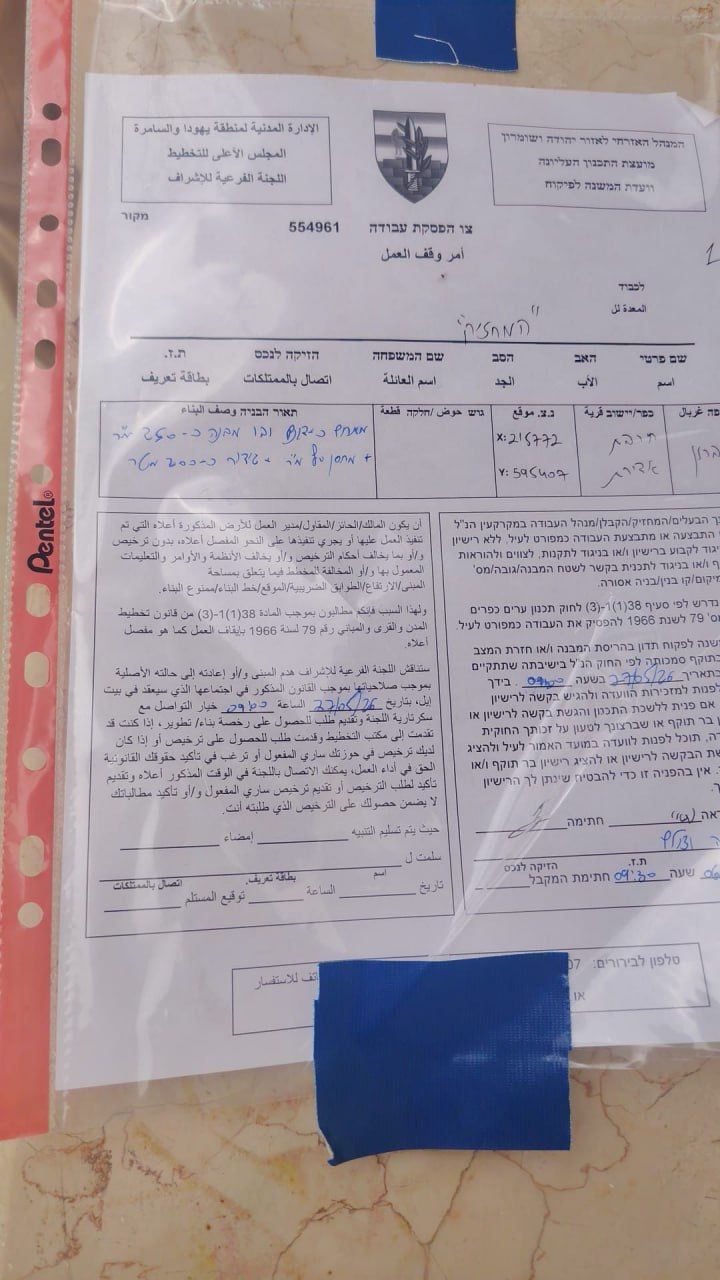 המנהל האזרחי לאזור יהודה ושומרון
מועצת התכנון העליונה
וועדת המשנה לפיקוח
الإدارة المدنية لمنطقة يهودا والسامرة
المجلس الأعلى للتخطيط
اللجنة الفرعية للإشراف
מקור
צו הפסקת עבודה 554961
أمر وقف العمل
לכבוד
"המחזיק"
שם פרטי האב הסב שם המשפחה הזיקה לנכס ת.ז.
اسم الأب الجد اسم العائلة اتصال بالممتلكات بطاقة تعريف
כפר/יישוב قرية נ.צ. מוקע موقع גוש حوض /חלקה قطعة תאור הבניה وصف البناء
X: 215772
Y: 595407
ך הבעלים/המחזיק/הקבלן/מנהל העבודה במקרקעין הנ"ל
התבצעה או מתבצעת העבודה כמפורט לעיל, ללא רישיון
יגוד לקבוע ברישיון ו/או בניגוד לתקנות, לצווים ולהוראות
ף ו/או בניגוד לתכנית בקשר לשטח המבנה/גובה/מס'
מיקום/קו בנין/בניה אסורה.
נדרש לפי סעיף 38(1)(1-3) לחוק תכנון ערים כפרים
מס' 79 לשנת 1966 להפסיק את העבודה כמפורט לעיל.
משנה לפקוח תדון בהריסת המבנה ו/או חזרת המצב
בתוקף סמכותה לפי החוק הנ"ל בישיבתה שתתקיים
בתאריך 27/05/26 בשעה 09:00. בידך
לפנות למזכירות הוועדה ולהגיש בקשה לרישיון
אם פנית ללשכת התכנון והגשת בקשה לרישיון או
בר תוקף או שברצונך לטעון על זכותך החוקית
דה, תוכל לפנות לוועדה במועד האמור לעיל ולהציג
ת הבקשה לרישיון או להציג רישיון בר תוקף ו/או
אין בהפניה זו כדי להבטיח שינתן לך הרישיון
חתימה
ת.ז. הזיקה לנכס
שעה 09:30 חתימת המקבל
أن يكون المالك/الحائز/المقاول/مدير العمل للأرض المذكورة أعلاه التي تم
تنفيذ العمل عليها أو يجري تنفيذها على النحو المفصل أعلاه، بدون ترخيص
و/أو بما يخالف أحكام الترخيص و/أو يخالف الأنظمة والأوامر والتعليمات
المعمول بها و/أو المخالفة المخطط فيما يتعلق بمساحة
المبنى/الارتفاع/الطوابق الضريبية/الموقع/خط البناء/ممنوع البناء.
ولهذا السبب فإنكم مطالبون بموجب المادة 38(1)(1-3) من قانون تخطيط
المدن والقرى والمباني رقم 79 لسنة 1966 بإيقاف العمل كما هو مفصل
أعلاه.
ستناقش اللجنة الفرعية للإشراف هدم المبنى و/أو إعادته إلى حالته الأصلية
بموجب صلاحياتها بموجب القانون المذكور في اجتماعها الذي سيعقد في بيت
إيل، بتاريخ 27/05/26 الساعة 09:00 خيار التواصل مع
سكرتارية اللجنة وتقديم طلب للحصول على رخصة بناء/ تطوير، إذا كنت قد
تقدمت إلى مكتب التخطيط وقدمت طلب للحصول على ترخيص أو إذا كان
لديك ترخيص في حوزتك ساري المفعول أو ترغب في تأكيد حقوقك القانونية
الحق في أداء العمل، يمكنك الاتصال باللجنة في الوقت المذكور أعلاه وتقديم
تأكيد لطلب الترخيص أو تقديم ترخيص ساري المفعول و/أو تأكيد مطالباتك
لا يضمن حصولك على الترخيص الذي طلبته أنت.
حيث يتم تسليم التنبيه إمضاء
سلمت ل
اسم بطاقة تعريف. اتصال بالممتلكات
تاريخ الساعة توقيع المستلم
טלפון לבירורים:
للاستفسار
או
Pentel